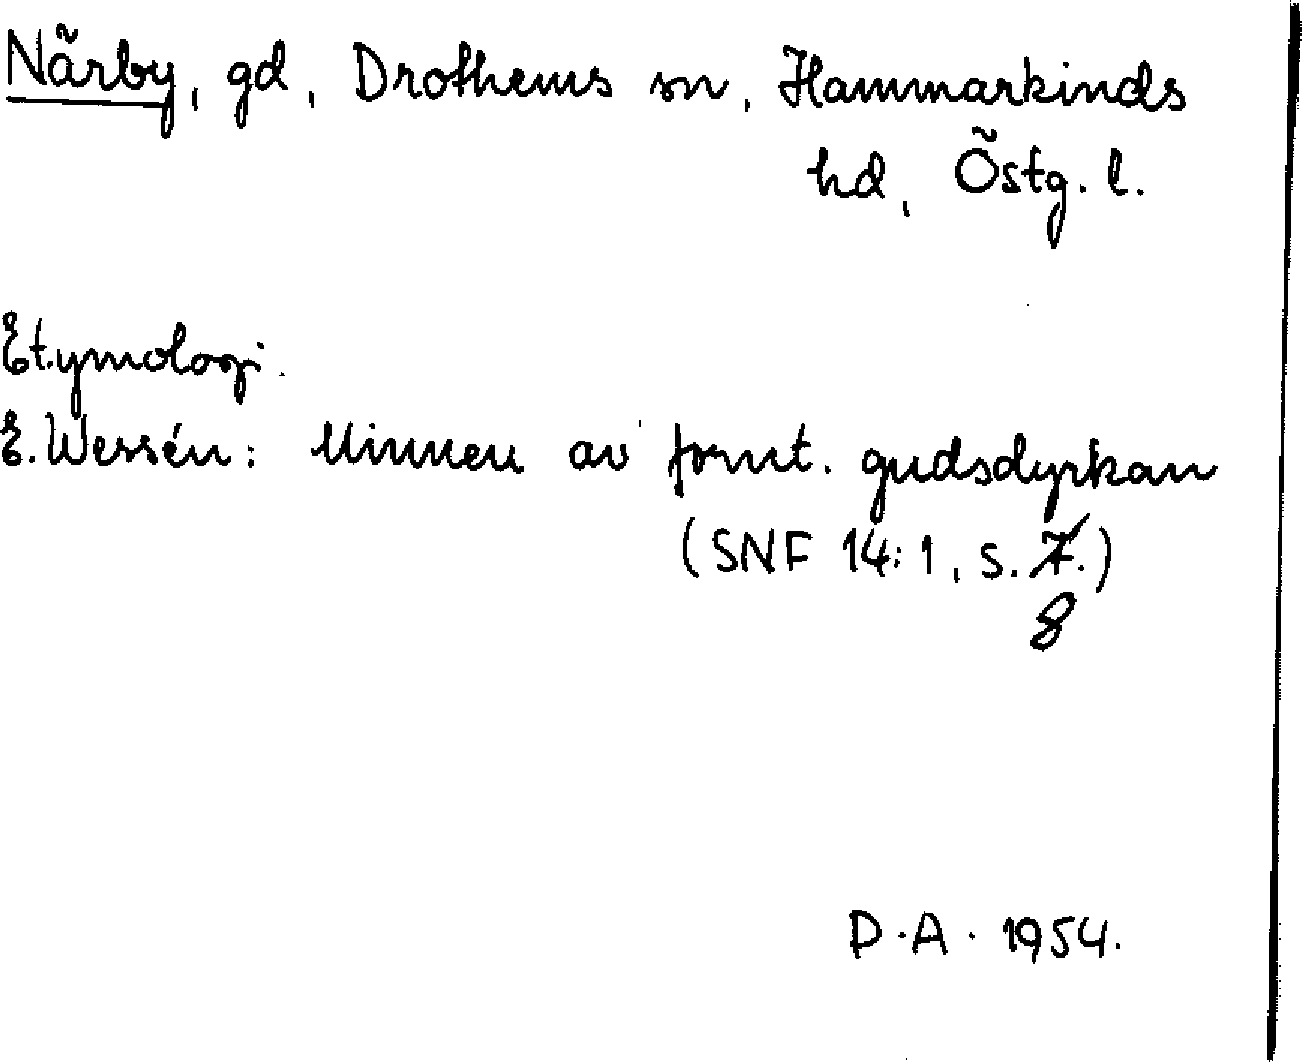 Närby, gd, Drothems sn, Hammarkinds
hd, Östg. l.
Etymologi.
E. Wessén: Minnen av fornt. gudsdyrkan
(SNF 14:1, s. 7.)
8
D.A. 1954.